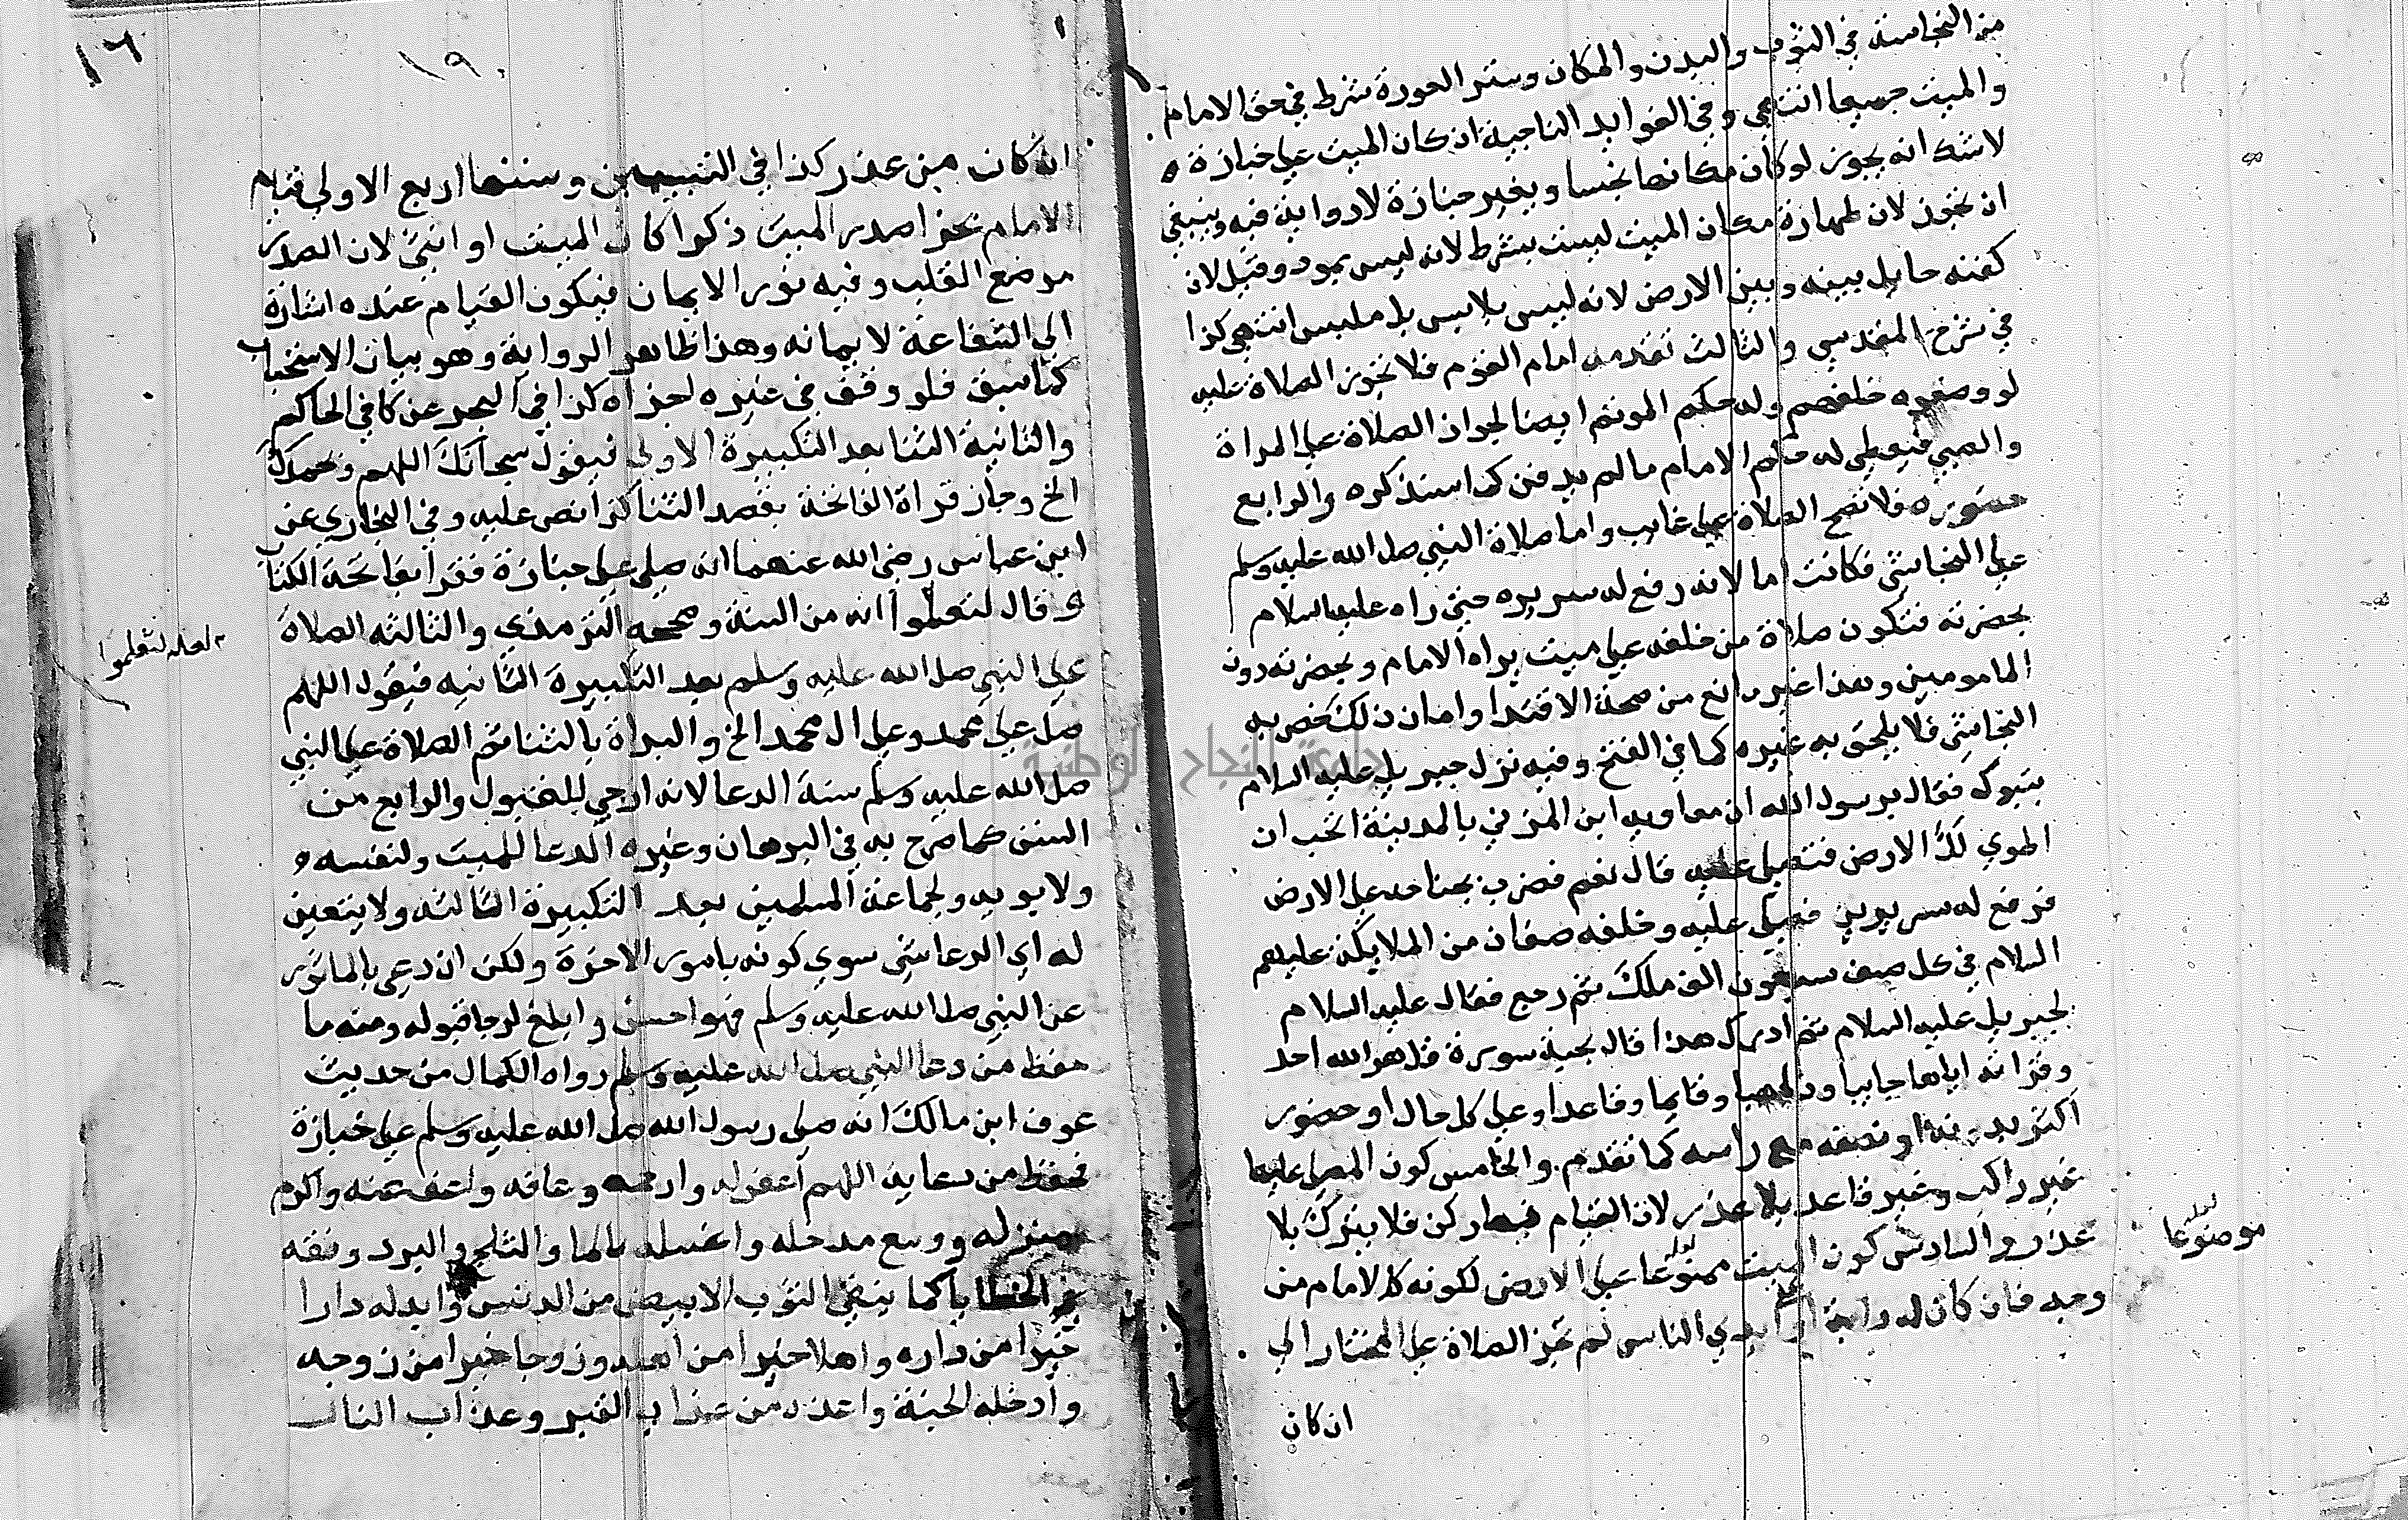 من النجاسة في الثوب والبدن والمكان وستر العورة شرط في حق الامام
والميت جميعا انتهي وفي الفوايد التاجية ان كان الميت علي جنازة
لاشك انه يجوز لو كان مكانها نجسا وبغير جنازة لا رواية فيه وينبغي
ان تجوز لان طهارة مكان الميت ليست بشرط لانه ليس بمود وقيل لان
كفنه حايل بينه وبين الارض لانه ليس بلابس بل ملبس انتهي كذا
في شرح المقدسي والثالث تقدمه امام القوم فلا تجوز الصلاة عليه
لو وضعوه خلفهم وله حكم الموتم ايضا لجواز الصلاة علي المراة
والصبي فيعطي له حكم الامام ما لم يدفن كذا سنذكره والرابع
حضوره فلا تصح الصلاة علي غايب واما صلاة النبي صلى الله عليه وسلم
علي النجاشي فكانت اما لانه رفع له سريره حتي راه عليه السلام
بحضرته فتكون صلاة من خلفه علي ميت يراه الامام وبحضرته دون
المامومين وهذا غير مانع من صحة الاقتدا واما ان ذلك خص به
النجاشي فلا يلحق به غيره كما في الفتح وفيه نزل جبريل عليه السلام
بتبوك فقال يرسول الله ان معاويه ابن المزني بالمدينة اتحب ان
اطوي لك الارض فتصلي عليه قال نعم فضرب بجناحه علي الارض
فرفع له سريره فصلي عليه وخلفه صفان من الملايكة عليهم
السلام في كل صف سبعون الف ملك ثم رجع فقال عليه السلام
لجبريل عليه السلام بم ادرك هذا قال بحبه سورة قل هو الله احد
وقراته اياها جاييا وذاهبا وقايما وقاعدا وعلي كل حال او حضور
اكثر بدنه او نصفه مع راسه كما تقدم والخامس كون المصلي عليها
غير راكب وغير قاعد بلا عذر لان القيام فيها ركن فلا يترك بلا
عذر والسادس كون الميت ممنوعا علي الارض لكونه كالامام من
لعله
موضوعا
وجه فان كان له دابة او علي ايدي الناس لم تجز الصلاة علي المختار الي
ان كان
١٦
١٩
ان كان من عذر كذا في التبيين وسننها اربع الاولي قيام
الامام نحو اصدر الميت ذكرا كان الميت او انثي لان الصدر
موضع القلب وفيه نور الايمان فيكون القيام عنده اشارة
الي الشفاعة لايمانه وهذا ظاهر الرواية وهو بيان الاستحباب
كما سبق فلو وقف في غيره اجزاه كذا في البحر عن كافي الحاكم
والثانية الثنا بعد التكبيرة الاولي فيقول سبحانك اللهم وبحمدك
الخ وجاز قراة الفاتحة بقصد الثنا كذا نص عليه وفي البخاري عن
ابن عباس رضي الله عنهما انه صلي علي جنازة فقرا بفاتحة الكتاب
وقال لتعلموا انه من السنة وصححه الترمذي والثالثه الصلاة
لعله لتعلموا
علي النبي صلى الله عليه وسلم بعد التكبيرة الثانيه فيقول اللهم
صل علي محمد وعلي ال محمد الخ والبداة بالثنا ثم الصلاة علي النبي
صلى الله عليه وسلم سنة الدعا لانه ارجي للقبول والرابع من
السنن كما صرح به في البرهان وغيره الدعا للميت ولنفسه
ولابويه ولجماعة المسلمين بعد التكبيرة الثالثه ولا يتعين
له اي الدعا شي سوي كونه بامور الاخرة ولكن ان دعي بالماثور
عن النبي صلى الله عليه وسلم فهو احسن وابلغ لرجا قبوله ومنه ما
حفظ من دعا النبي صلى الله عليه وسلم رواه الكمال من حديث
عوف ابن مالك انه صلى رسول الله صلى الله عليه وسلم علي جنازة
فحفظ من دعايه اللهم اغفر له وارحمه وعافه واعف عنه واكرم
منزله ووسع مدخله واغسله بالما والثلج والبرد ونقه
من الخطايا كما ينقي الثوب الابيض من الدنس وابدله دارا
خيرا من داره واهلا خيرا من اهله وزوجا خيرا من زوجه
وادخله الجنة واعذه من عذاب القبر وعذاب النار
جامعة النجاح الوطنية